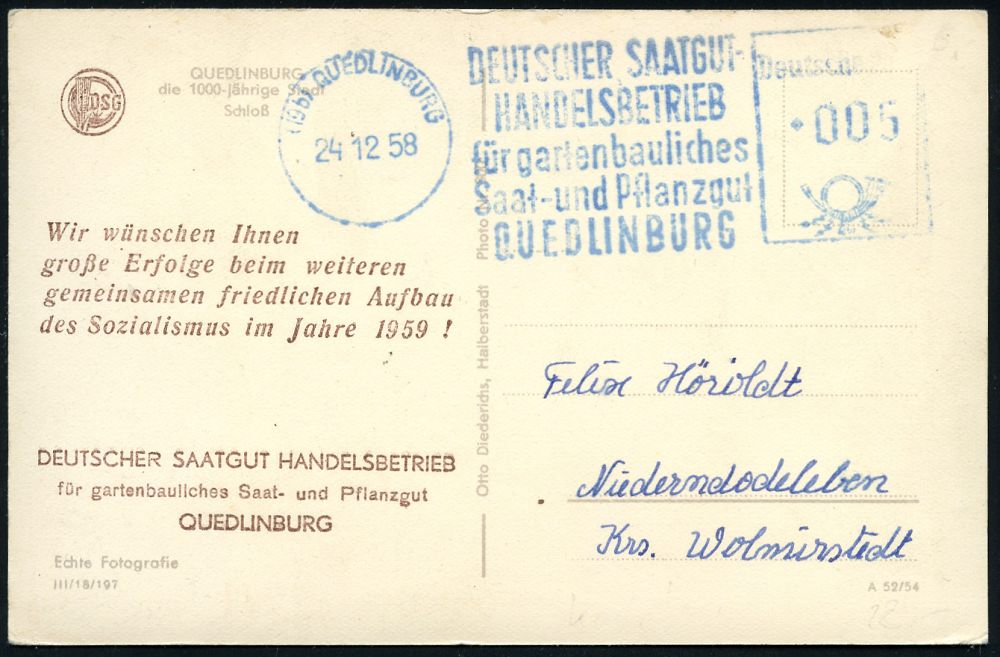 DSG
QUEDLINBURG
die 1000-jährige Stadt
Schloß
QUEDLINBURG
24 12 58
DEUTSCHER SAATGUT-
HANDELSBETRIEB
für gartenbauliches
Saat- und Pflanzgut
QUEDLINBURG
Deutsche
005
Wir wünschen Ihnen
große Erfolge beim weiteren
gemeinsamen friedlichen Aufbau
des Sozialismus im Jahre 1959 !
DEUTSCHER SAATGUT HANDELSBETRIEB
für gartenbauliches Saat- und Pflanzgut
QUEDLINBURG
Echte Fotografie
III/18/197
Otto Diederichs, Halberstadt Photo
Felix Höroldt
Niederndodeleben
Krs. Wolmirstedt
A 52/54